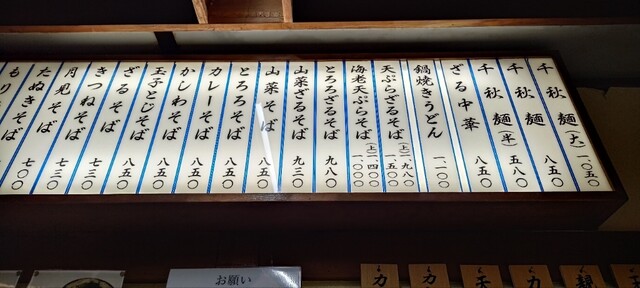 千秋麺(大) 一〇五〇
千秋麺 八五〇
千秋麺(半) 五八〇
ざる中華 八五〇
鍋焼きうどん 一一〇〇
天ぷらざるそば (上)一、九八〇 一、五〇〇
海老天ぷらそば (上)一、四〇〇 一、〇〇〇
とろろざるそば 九八〇
山菜ざるそば 九三〇
山菜そば 八五〇
とろろそば 八五〇
カレーそば 八五〇
かしわそば 八五〇
玉子とじそば 八五〇
ざるそば 八五〇
きつねそば 七三〇
月見そば 七三〇
たぬきそば 七〇〇
もりそば
お願い